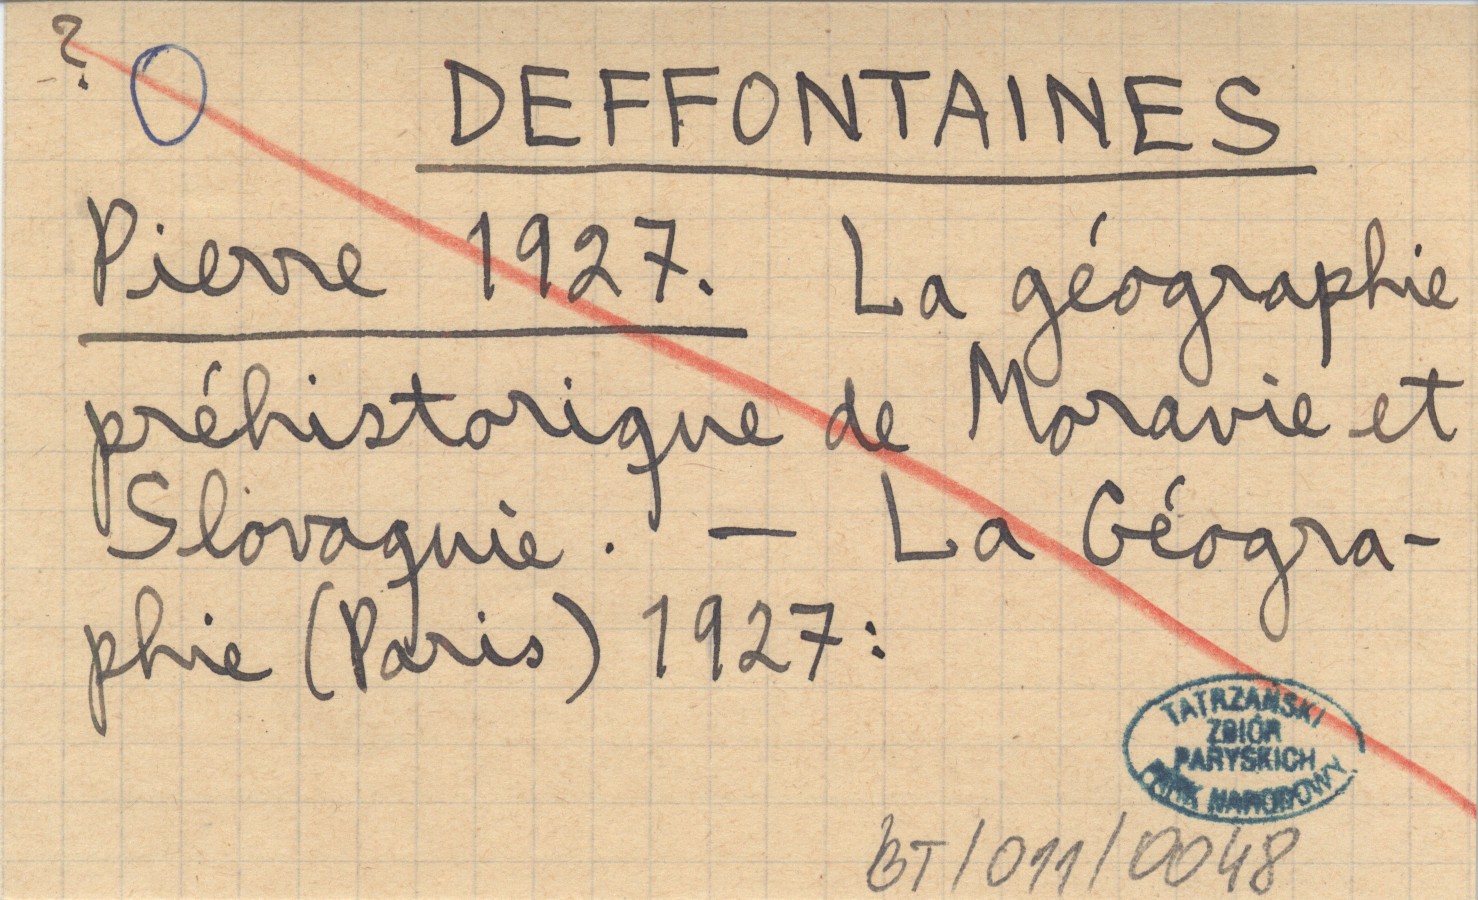 ?
DEFFONTAINES
Pierre 1927. La géographie
préhistorique de Moravie et
Slovaquie. — La Géogra-
phie (Paris) 1927:
TATRZAŃSKI
ZBIÓR
PARYSKICH
PARK NARODOWY
BT/011/0048